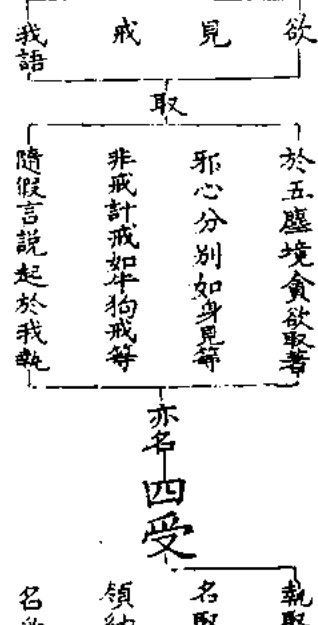 欲
見
戒
我語
取
於五塵境貪欲取著
邪心分別如身見等
非戒計戒如牛狗戒等
隨假言説起於我執
亦名
四受
執取
名取
領納
名